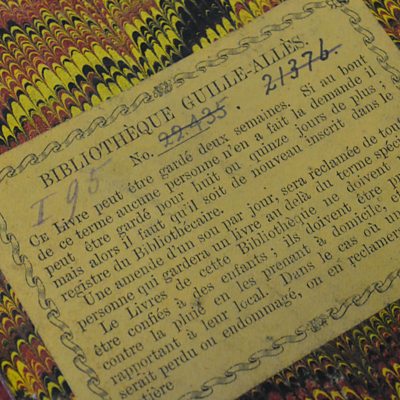 BIBLIOTHÈQUE GUILLE-ALLÈS.
No. 22.435. 21376.
I 95
CE Livre peut être gardé deux semaines. Si au bout
de ce terme aucune personne n'en a fait la demande il
peut être gardé pour huit ou quinze jours de plus ;
mais alors il faut qu'il soit de nouveau inscrit dans le
registre du Bibliothécaire.
Une amende d'un sou par jour, sera réclamée de tout
personne qui gardera un livre au delà du terme spéc
Le Livres de cette Bibliothèque ne doivent
être confiés à des enfants ; ils doivent être
contre la pluie en les prenant à domicile, e
rapportant à leur local. Dans le cas où un
serait perdu ou endommagé, on en réclamer
tière